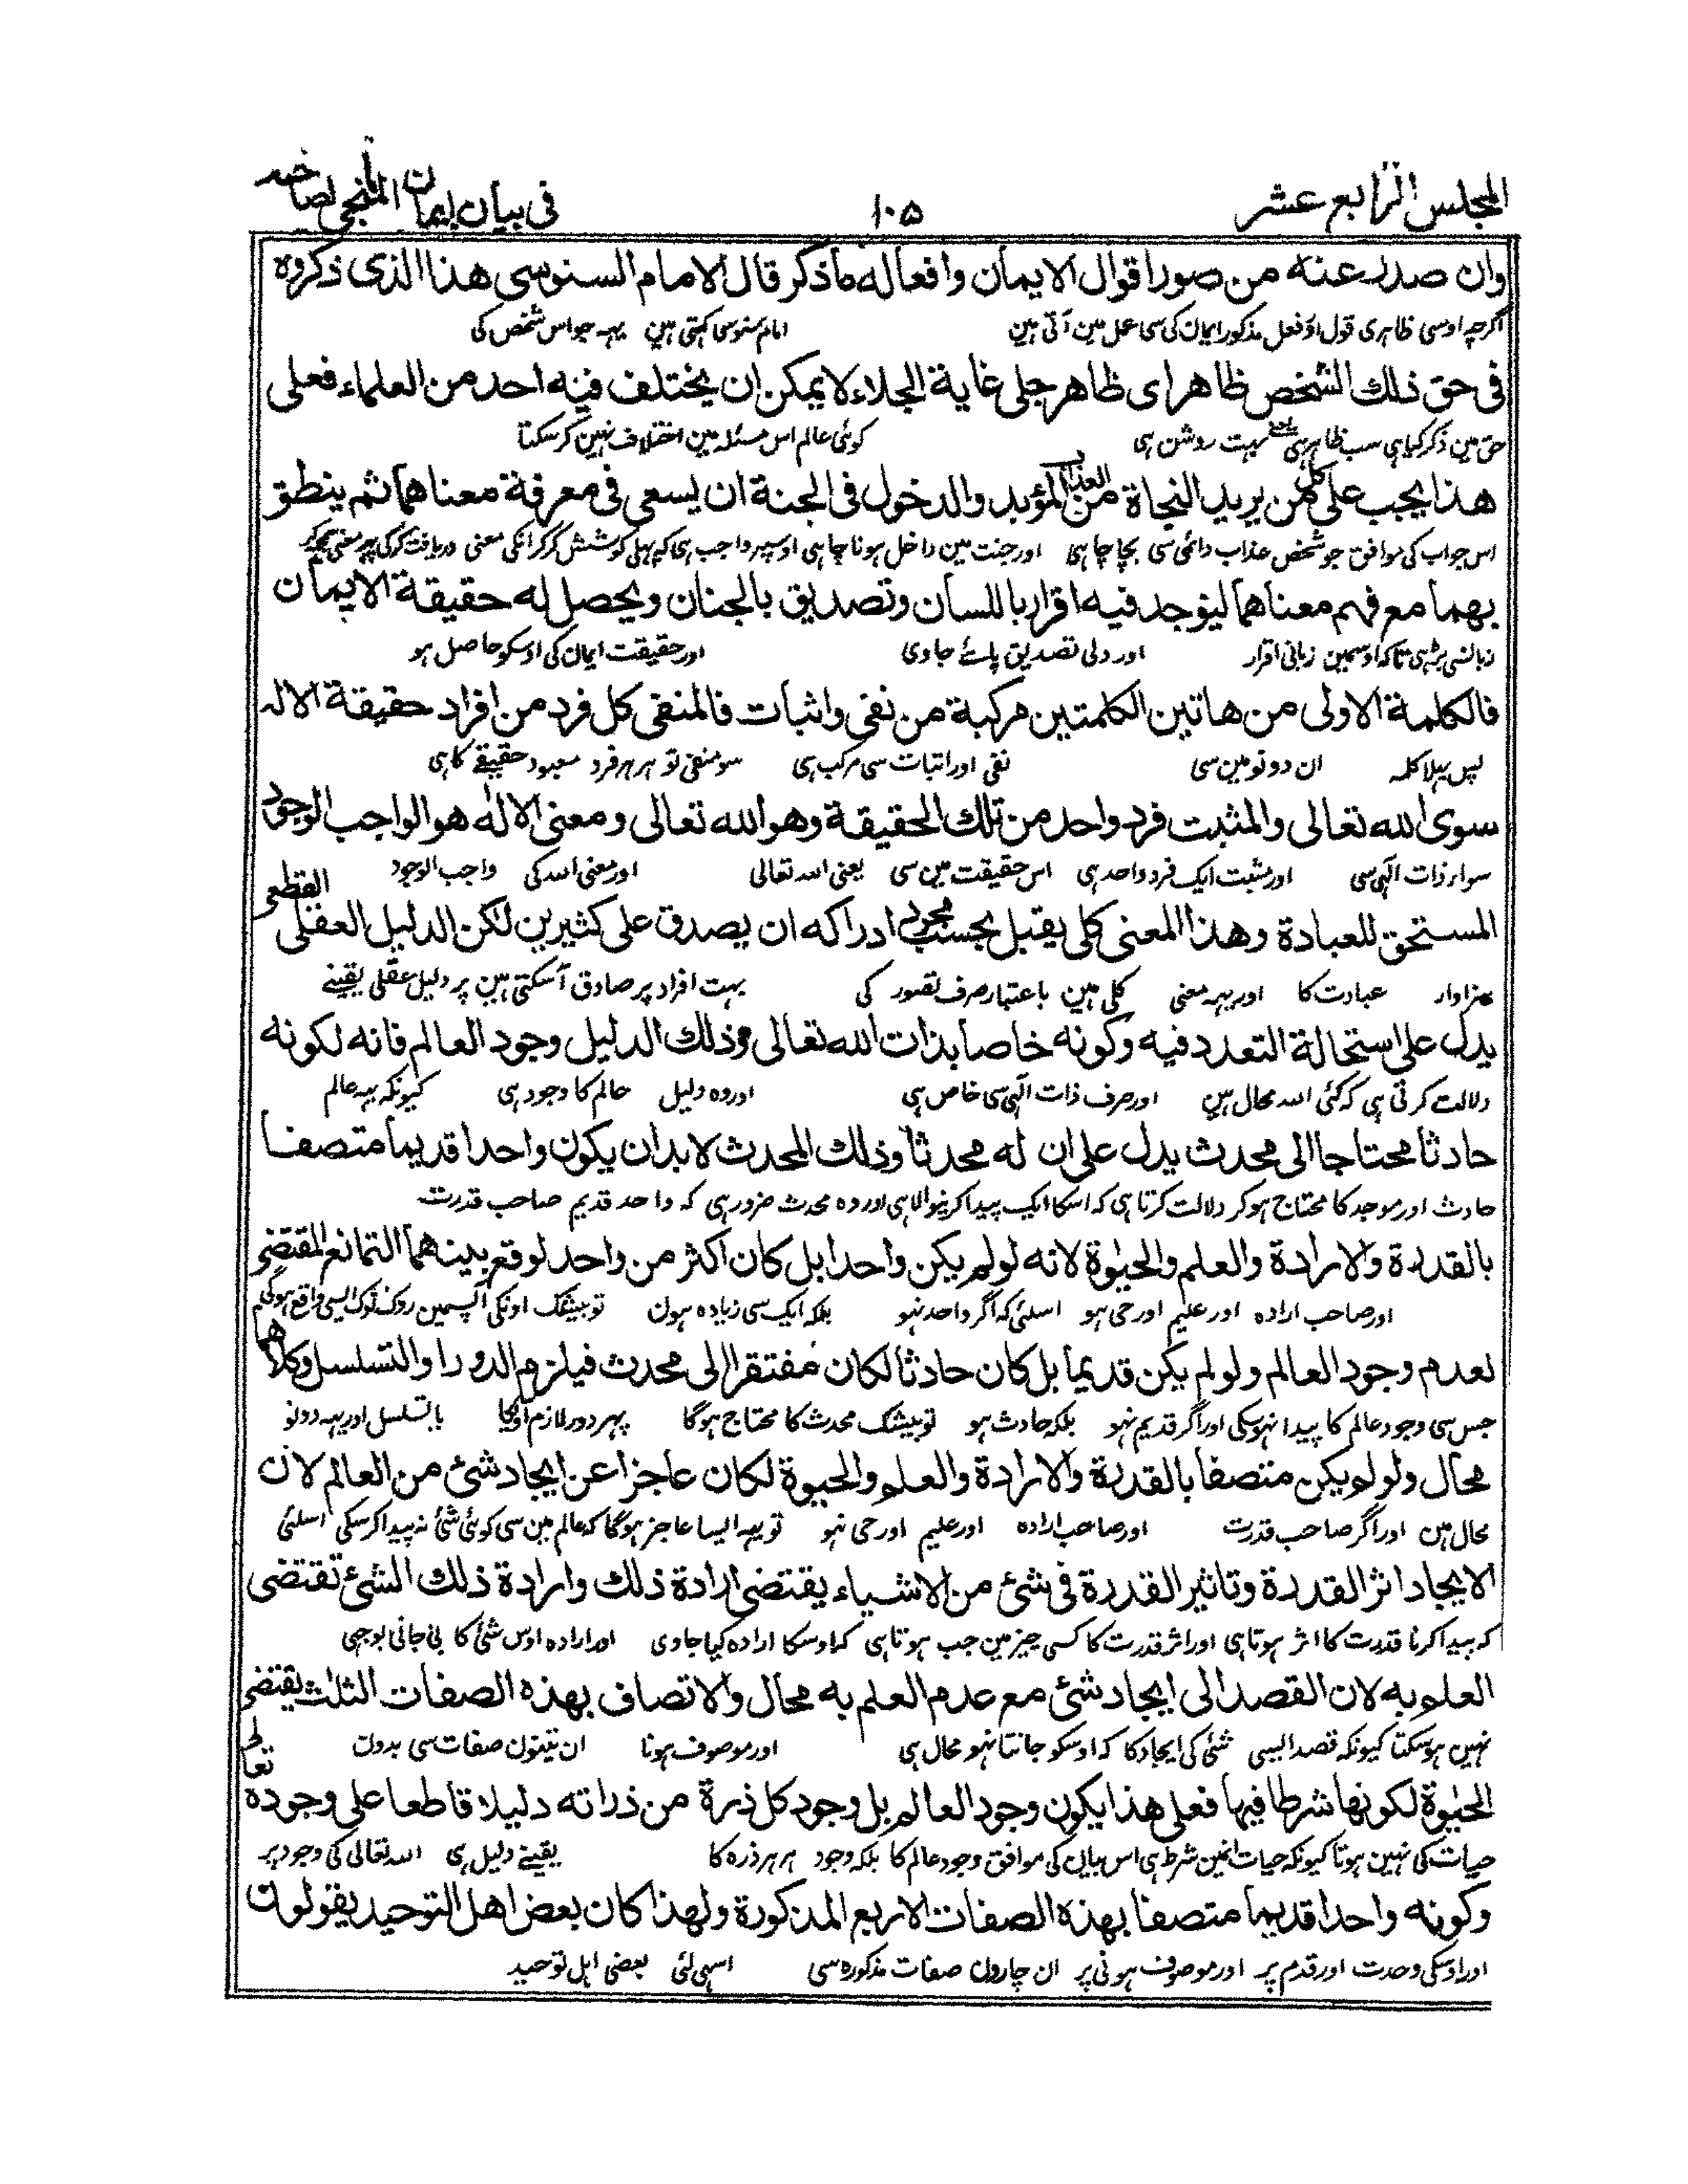 المجلس الرابع عشر
۱۰۵
فی بیان ایمان المنجی لصاحبه
وان صدر عنه من صور اقوال الایمان وافعاله ماذکر قال الامام السنوسی هذا الذی ذکروه
اگرچه اوسی ظاہری قول اؤ فعل مذکور ایمان کی سی عمل مین آتی ہین امام سنوسی کہتی ہین یہہ جو اس شخص کی
فی حق ذلك الشخص ظاهر ای ظاهر جلی غایة الجلاء لا یمکن ان یختلف فیه احد من العلماء فعلی
حق مین ذکر کیا ہی سب ظاہر ہی بہت روشن ہی کوئی عالم اس مسئلہ مین اختلاف نہین کر سکتا
هذا یجب علی کل من یرید النجاة من العذاب المؤبد والدخول فی الجنة ان یسعی فی معرفة معناهما ثم ینطق
اس جواب کی موافق جو شخص عذاب دائمی سی بچا چاہی اور جنت مین داخل ہونا چاہی اوسپر واجب ہی کہ پہلی کوشش کر کر انکی معنی دریافت کر کی پہر معنی سمجہہ کر
بهما مع فهم معناهما لیوجد فیه اقرار باللسان وتصدیق بالجنان ویحصل له حقیقة الایمان
زبانسی پڑہی تاکہ اوسمین زبانی اقرار اور دلی تصدیق پائے جاوی اور حقیقت ایمان کی اوسکو حاصل ہو
فالکلمة الاولی من هاتین الکلمتین مرکبة من نفی واثبات فالمنفی کل فرد من افراد حقیقة الاله
پس پہلا کلمہ ان دونو مین سی نفی اور اثبات سی مرکب ہی سو منفی تو ہر ہر فرد معبود حقیقے کا ہی
سوی الله تعالی والمثبت فرد واحد من تلك الحقیقة وهو الله تعالی ومعنی الاله هو الواجب الوجود
سواء ذات الٓہی سی اور مثبت ایک فرد واحد ہی اس حقیقت مین سی یعنی اللہ تعالی اور معنی اللہ کی واجب الوجود
المستحق للعبادة وهذا المعنی کلی یقبل بحسب مجرد ادراکه ان یصدق علی کثیرین لکن الدلیل العقلی القطعی
سزاوار عبادت کا اور یہہ معنی کلی ہین باعتبار صرف تصور کی بہت افراد پر صادق آ سکتی ہین پر دلیل عقلی یقینے
یدل علی استحالة التعدد فیه وکونه خاصا بذات الله تعالی وذلك الدلیل وجود العالم فانه لکونه
دلالت کرتی ہی کہ کئی اللہ محال ہین اور صرف ذات الٓہی سی خاص ہی اور وہ دلیل عالم کا وجود ہی کیونکہ یہہ عالم
حادثا محتاجا الی محدث یدل علی ان له محدثا وذلك المحدث لابد ان یکون واحدا قدیما متصفا
حادث اور موجد کا محتاج ہو کر دلالت کرتا ہی کہ اسکا ایک پیدا کرنیوالا ہی اور وہ محدث ضرور ہی کہ واحد قدیم صاحب قدرت
بالقدرة والارادة والعلم والحیوة لانه لو لم یکن واحدا بل کان اکثر من واحد لوقع بینهما التمانع المقتضی
اور صاحب ارادہ اور علیم اور حی ہو اسلئی کہ اگر واحد نہو بلکہ ایک سی زیادہ ہون تو بیشک اونکی آپسمین روک ٹوک ایسی واقع ہوگی
لعدم وجود العالم ولو لم یکن قدیما بل کان حادثا لکان مفتقرا الی محدث فیلزم الدور او التسلسل وکلاهما
جس سی وجود عالم کا پیدا نہوسکی اور اگر قدیم نہو بلکہ حادث ہو تو بیشک محدث کا محتاج ہوگا پہر دور لازم آویگا یا تسلسل اور یہہ دونو
محال ولو لم یکن متصفا بالقدرة والارادة والعلم والحیوة لکان عاجزا عن ایجاد شئ من العالم لان
محال ہین اور اگر صاحب قدرت اور صاحب ارادہ اور علیم اور حی نہو تو یہہ ایسا عاجز ہوگا کہ عالم مین سی کوئی شئ نہ پیدا کرسکی اسلئی
الایجاد اثر القدرة وتاثیر القدرة فی شئ من الاشیاء یقتضی ارادة ذلك وارادة ذلك الشئ تقتضی
کہ پیدا کرنا قدرت کا اثر ہوتا ہی اور اثر قدرت کا کسی چیز مین جب ہوتا ہی کہ اوسکا ارادہ کیا جاوی اور ارادہ اوس شئ کا بی جانی بوجہی
العلم به لان القصد الی ایجاد شئ مع عدم العلم به محال والاتصاف بهذه الصفات الثلث یقتضی
نہین ہو سکتا کیونکہ قصد ایسی شئ کی ایجاد کا کہ اوسکو جانتا نہو محال ہی اور موصوف ہونا ان تینون صفات سی بدون
الحیوة لکونها شرطا فیها فعلی هذا یکون وجود العالم بل وجود کل ذرة من ذراته دلیلا قاطعا علی وجوده تعالی
حیات کی نہین ہوتا کیونکہ حیات انمین شرط ہی اس بیان کی موافق وجود عالم کا بلکہ وجود ہر ہر ذرہ کا یقینے دلیل ہی اللہ تعالی کی وجود پر
وکونه واحدا قدیما متصفا بهذه الصفات الاربع المذکورة ولهذا کان بعض اهل التوحید یقولون
اور اوسکی وحدت اور قدم پر اور موصوف ہونی پر ان چارون صفات مذکورہ سی اسی لئی بعضی اہل توحید